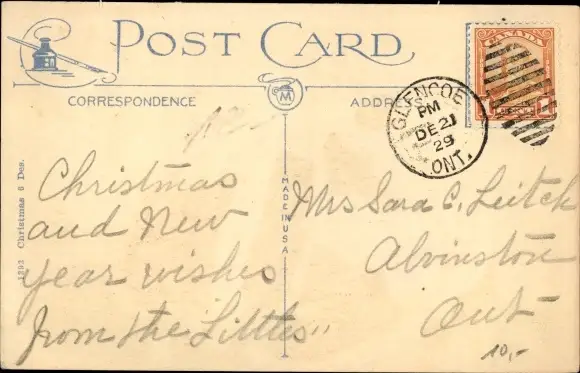 POST CARD
CORRESPONDENCE
ADDRESS
CANADA
GLENCOE
PM
DE 21
29
ONT.
M
MADE IN USA
1293 Christmas 6 Des.
Christmas
and New
year wishes
from the Littles"
Mrs Sara C. Leitch
Alvinston
Ont
10,-